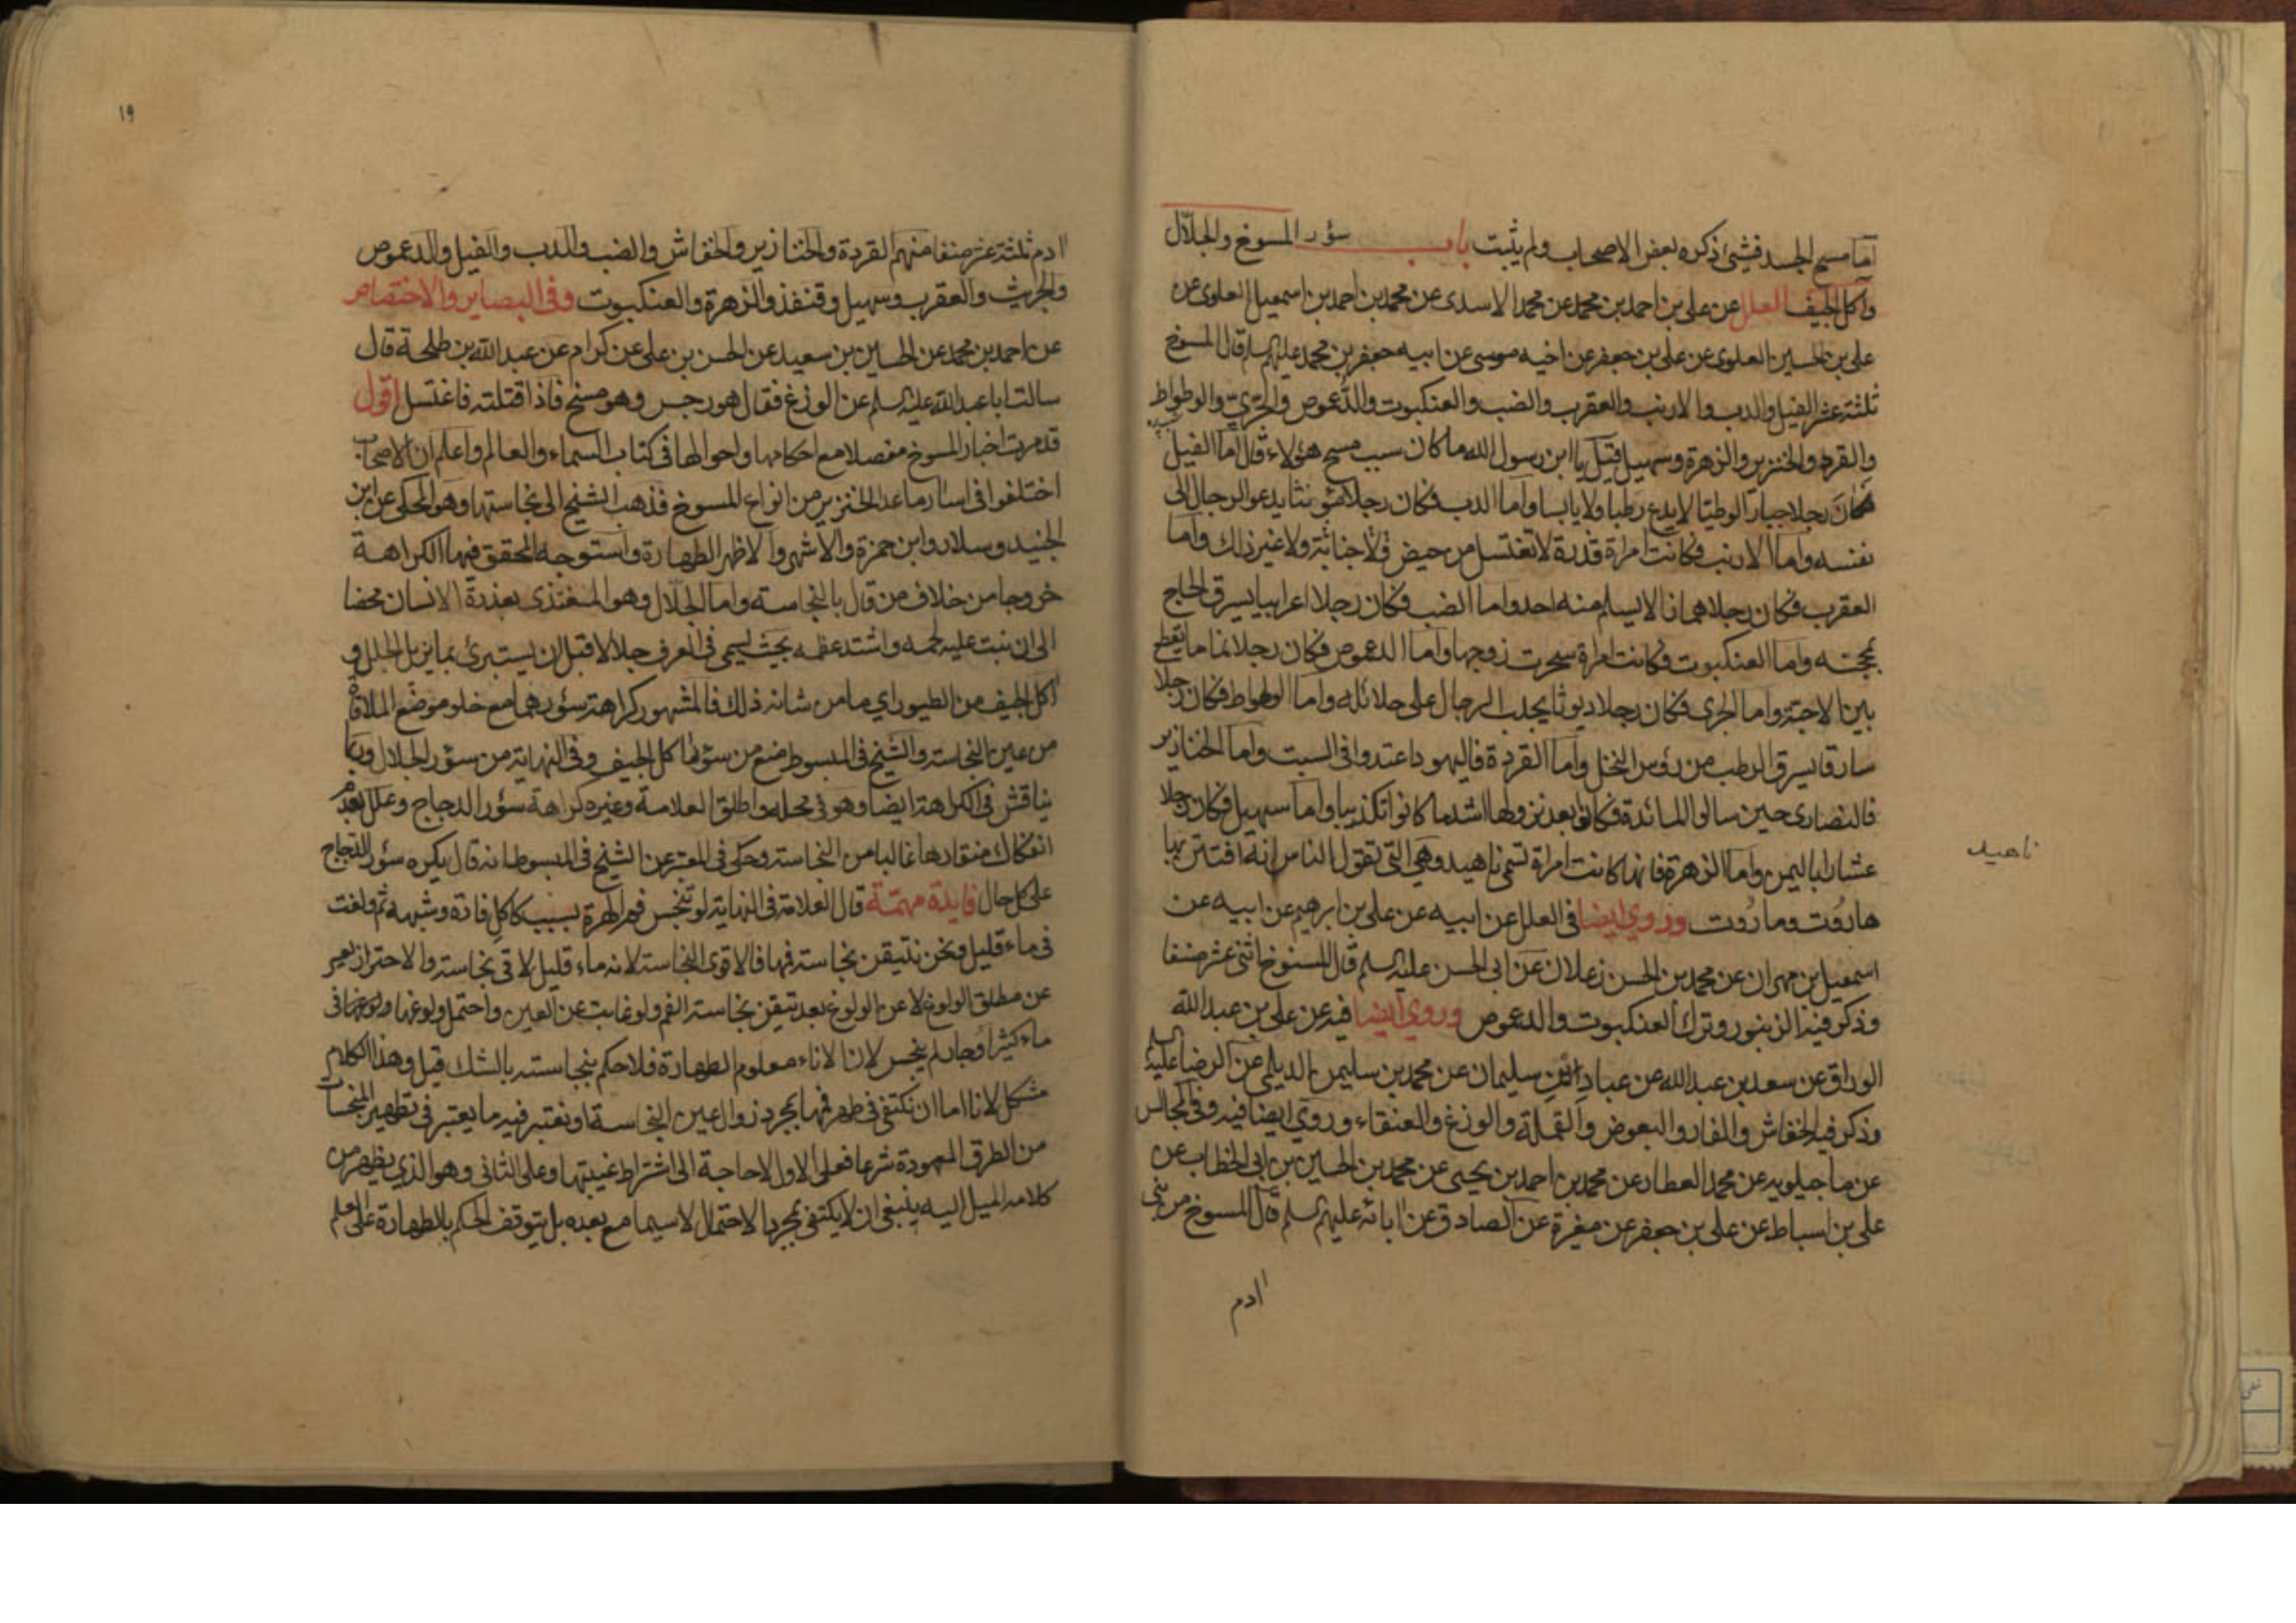 اما مسح الجسد فشئ ذكره بعض الاصحاب ولم يثبت باب سؤر المسوخ والجلال
وآكل الجيف العلل عن على بن احمد بن محمد عن محمد الاسدى عن محمد بن احمد بن اسمعيل العلوى عن
على بن الحسين العلوى عن على بن جعفر عن اخيه موسى عن ابيه جعفر بن محمد عليهم السلم قال المسوخ
ثلثة عشر الفيل والدب والارنب والعقرب والضب والعنكبوت والدعموص والجرى والوطواط
والقرد والخنزير والزهرة وسهيل قيل يا ابن رسول الله ما كان سبب مسخ هؤلاء قال اما الفيل
فكان رجلا جبارا لوطيا لا يدع رطبا ولا يابسا واما الدب فكان رجلا مؤنثا يدعو الرجال الى
نفسه واما الارنب فكانت امراة قذرة لا تغتسل من حيض ولا جنابة ولا غير ذلك واما
العقرب فكان رجلا همازا لا يسلم منه احد واما الضب فكان رجلا اعرابيا يسرق الحاج
بمحجنه واما العنكبوت فكانت امراة سحرت زوجها واما الدعموص فكان رجلا نماما يقطع
بين الاحبة واما الجرى فكان رجلا ديوثا يجلب الرجال على حلائله واما الوطواط فكان رجلا
سارقا يسرق الرطب من رؤس النخل واما القردة فاليهود اعتدوا فى السبت واما الخنازير
فالنصارى حين سالوا المائدة فكانوا بعد نزولها اشد ما كانوا تكذيبا واما سهيل فكان رجلا
عشارا باليمن واما الزهرة فانها كانت امراة تسمى ناهيد وهى التى تقول الناس انه افتتن بها
ناهيد
هاروت وماروت وروي ايضا فى العلل عن ابيه عن على بن ابرهيم عن ابيه عن
اسمعيل بن مهران عن محمد بن الحسن زعلان عن ابى الحسن عليه السلم قال المسوخ اثنى عشر صنفا
وذكر فيه الزنبور وترك العنكبوت والدعموص وروي ايضا فيه عن على بن عبد الله
الوراق عن سعد بن عبد الله عن عباد بن سليمان عن محمد بن سليمن الديلمى عن الرضا عليه السلم
وذكر فيه الخفاش والفار والبعوض والقملة والوزغ والعنقاء وروي ايضا فيه وفى المجالس
عن ماجيلويه عن محمد العطار عن محمد بن احمد بن يحيى عن محمد بن الحسين بن ابى الخطاب عن
على بن اسباط عن على بن جعفر عن مغيرة عن الصادق عن ابائه عليهم السلم قال المسوخ من بنى
ادم
١٩
ادم ثلثة عشر صنفا منهم القردة والخنازير والخفاش والضب والدب والفيل والدعموص
والجريث والعقرب وسهيل وقنفذ والزهرة والعنكبوت وفى البصاير والاختصاص
عن احمد بن محمد عن الحسين بن سعيد عن الحسن بن على عن كرام عن عبد الله بن طلحة قال
سالت ابا عبد الله عليه السلم عن الوزغ فقال هو رجس وهو مسخ فاذا قتلته فاغتسل اقول
قد مرت اخبار المسوخ مفصلا مع احكامها واحوالها فى كتاب السماء والعالم واعلم ان الاصحاب
اختلفوا فى اسار ما عدا الخنزير من انواع المسوخ فذهب الشيخ الى نجاستها وهو المحكى عن ابن
الجنيد وسلار وابن حمزة والاشهر والاظهر الطهارة واستوجه المحقق فيها الكراهة
خروجا من خلاف من قال بالنجاسة واما الجلال وهو المغتذى بعذرة الانسان محضا
الى ان نبت عليه لحمه واشتد عظمه بحيث يسمى فى العرف جلالا قبل ان يستبرئ بما يزيل الجلل و
اكل الجيف من الطيور اي ما من شانه ذلك فالمشهور كراهة سؤرهما مع خلو موضع الملاقاة
من عين النجاسة والشيخ فى المبسوط منع من سؤر آكل الجيف وفى النهاية من سؤر الجلال وربما
يناقش فى الكراهة ايضا وهو فى محله واطلق العلامة وغيره كراهة سؤر الدجاج وعلل بعدم
انفكاك منقارها غالبا من النجاسة وحكى فى المعتبر عن الشيخ فى المبسوط انه قال يكره سؤر الدجاج
على كل حال فايدة مهمة قال العلامة فى النهاية لو تنجس فم الهرة بسبب كاكل فارة وشبهه ثم ولغت
فى ماء قليل ونحن نتيقن نجاسة فمها فالاقوى النجاسة لانه ماء قليل لاقى نجاسة والاحتراز يعسر
عن مطلق الولوغ لا عن الولوغ بعد تيقن نجاسة الفم ولو غابت عن العين واحتمل ولوغها فى
ماء كثير او جار لم ينجس لان الاناء معلوم الطهارة فلا حكم بنجاسته بالشك قيل وهذا الكلام
مشكل لانا اما ان نكتفى فى طهر فمها بمجرد زوال عين النجاسة او نعتبر فيه ما يعتبر فى تطهير المنجسات
من الطرق المعهودة شرعا فعلى الاول لا حاجة الى اشتراط غيبتها وعلى الثانى وهو الذي يظهر من
كلامه الميل اليه ينبغى ان لا يكتفى بمجرد الاحتمال لا سيما مع بعده بل يتوقف الحكم بالطهارة على العلم